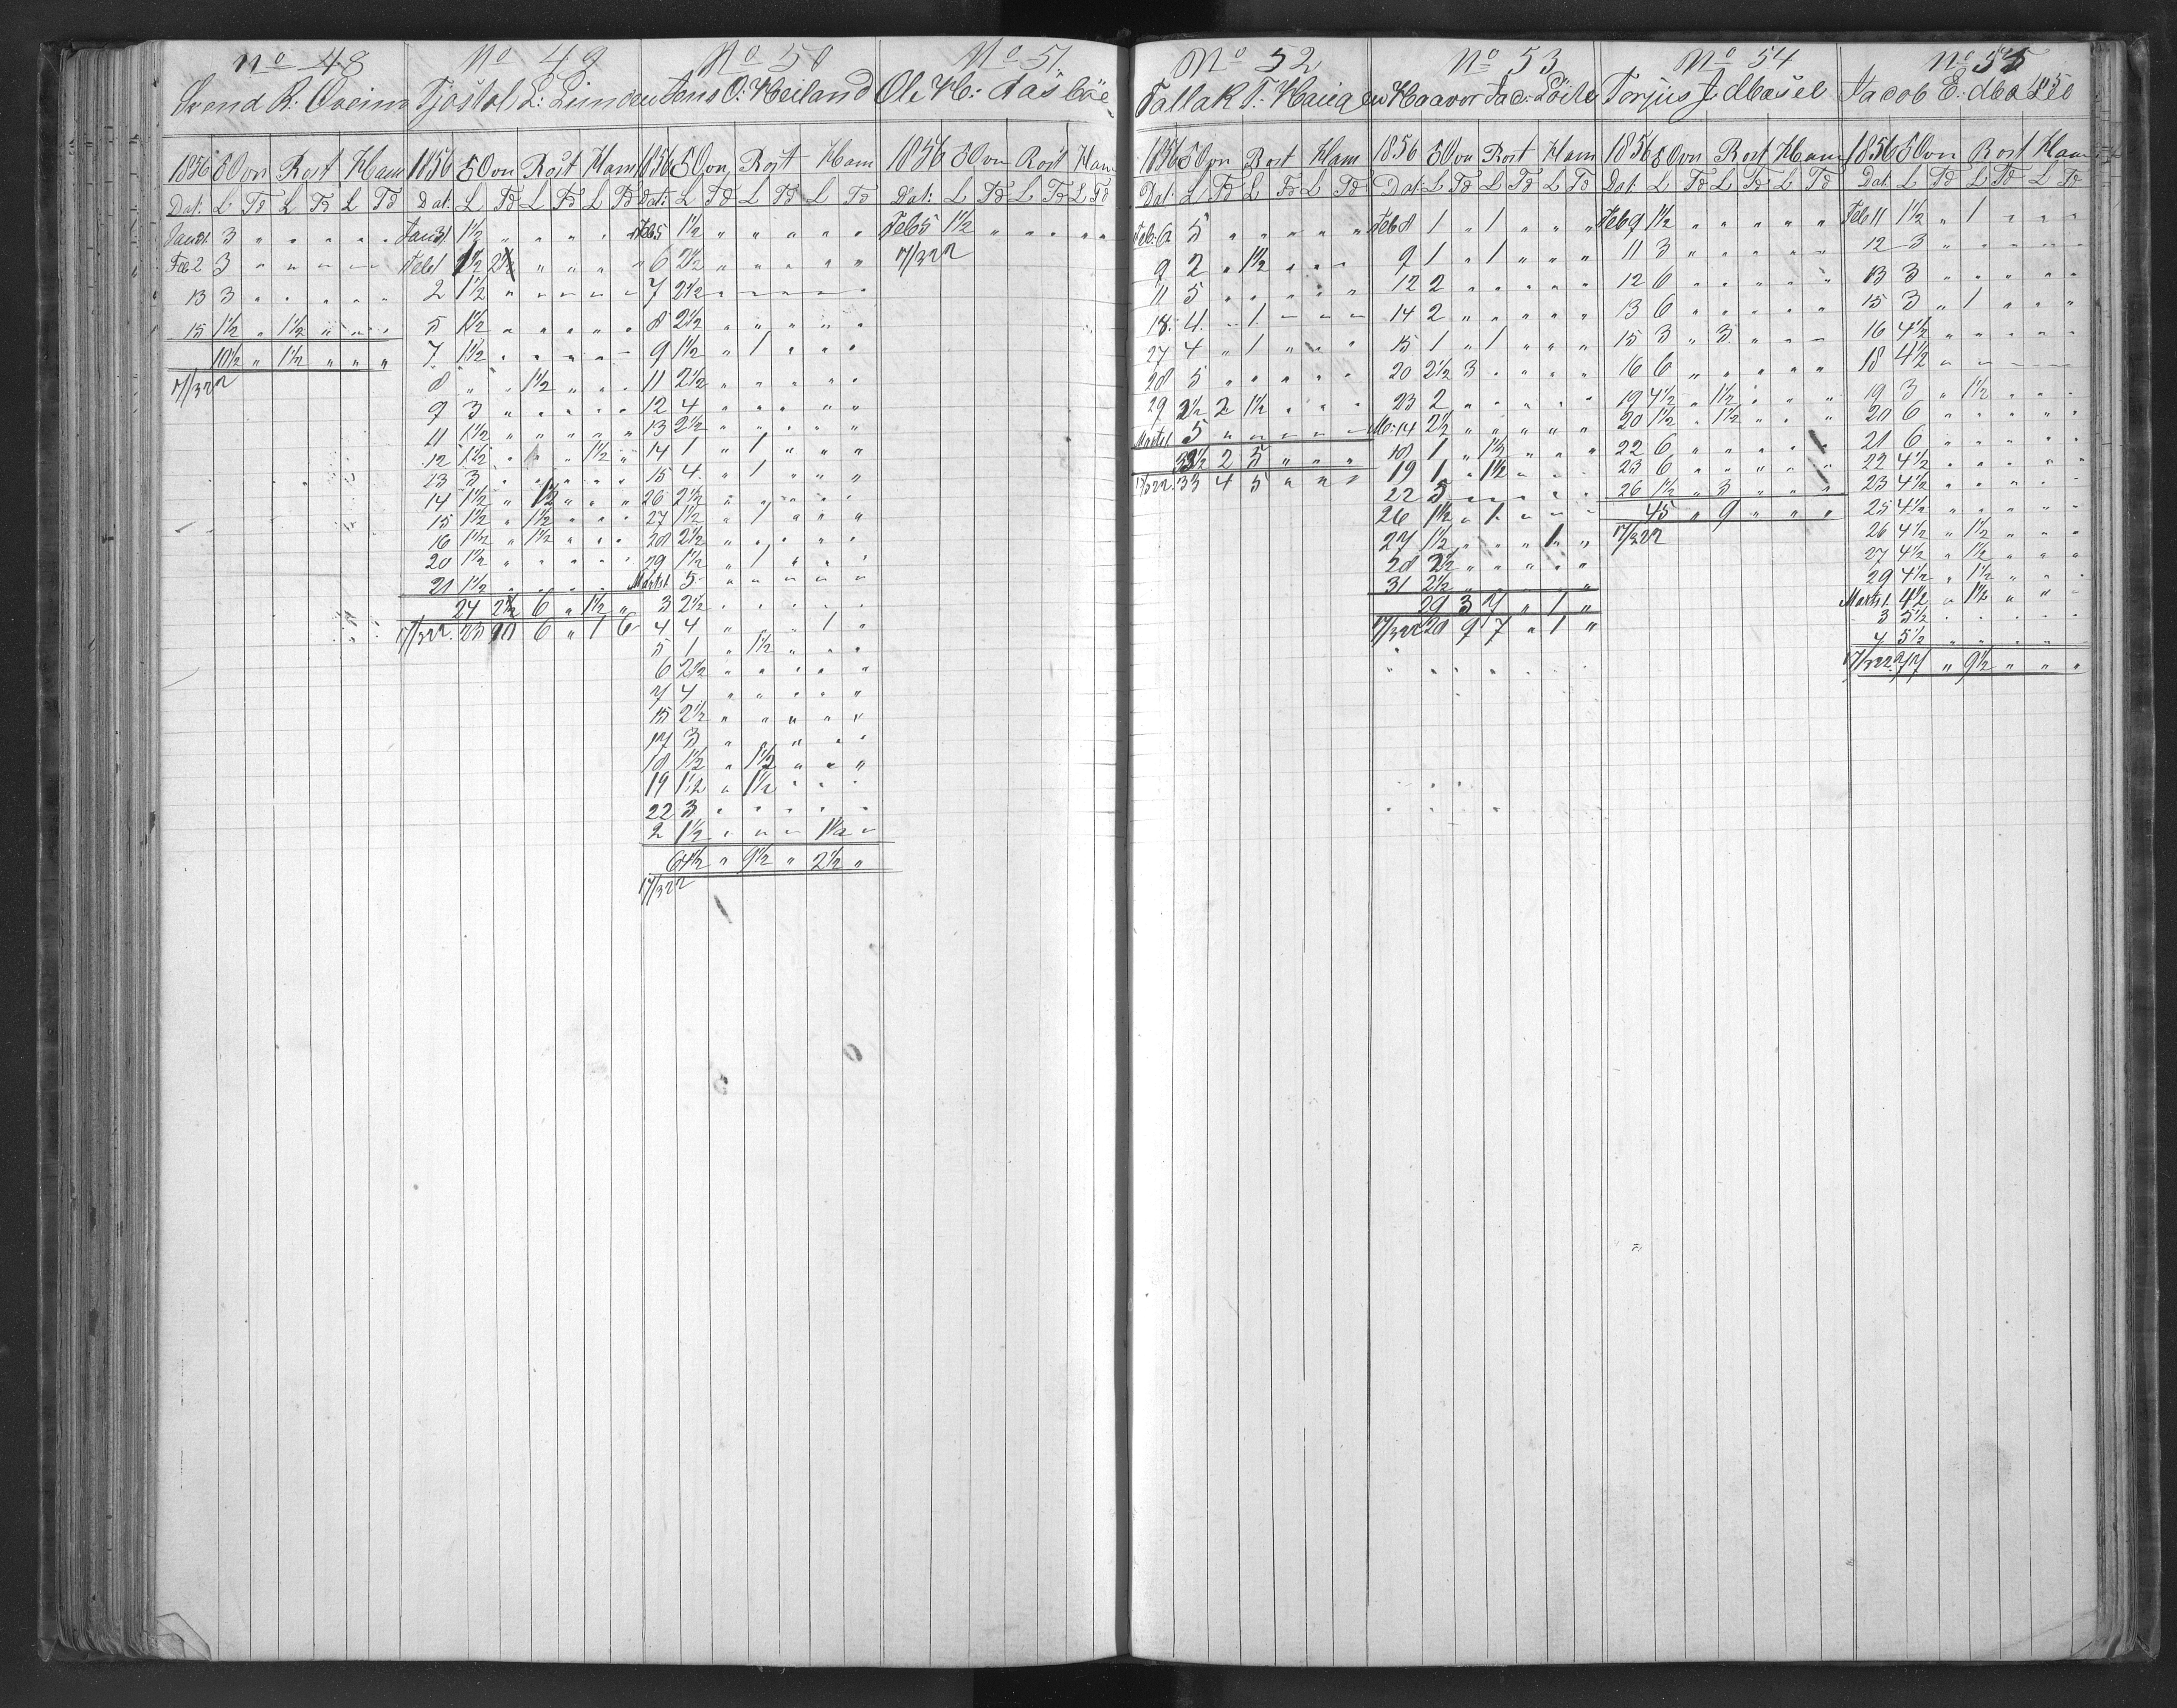 No 48
Svend R: Oveim
1856 Ovn Rost Ham
Dat: L Td L Td L Td
Jan 31 3 " " " " "
Feb 2 3 " " " " "
13 3 " " " " "
15 1½ " 1½ " " "
10½ " 1½ " " "
17/3 22
No 49
Tjostol L: Lunden
1856 Ovn Rost Ham
Dat: L Td L Td L Td
Jan 31 1½ " " " " "
Feb 1 1½ 2½ " " " "
2 1½ " " " " "
5 1½ " " " " "
7 1½ " " " " "
8 " " 1½ " " "
9 3 " " " " "
11 1½ " " " " "
12 1½ " " " 1½ "
13 3 " " " " "
14 1½ " 1½ " " "
15 1½ " 1½ " " "
16 1½ " 1½ " " "
20 1½ " " " " "
21 1½ " " " " "
24 2½ 6 " 1½ "
17/3 22. 23 10 6 " 1 6
No 50
Jens O: Heiland
1856 Ovn Rost Ham
Dat: L Td L Td L Td
Feb 5 1½ " " " " "
6 2½ " " " " "
7 2½ " " " " "
8 2½ " " " " "
9 1½ " 1 " " "
11 2½ " " " " "
12 4 " " " " "
13 2½ " " " " "
14 1 " 1 " " "
15 4 " 1 " " "
26 2½ " " " " "
27 1½ " 1 " " "
28 2½ " " " " "
29 1½ " 1 " " "
Marts 1 5 " " " " "
3 2½ " " " " "
4 4 " " " 1 "
5 1 " 1½ " " "
6 2½ " " " " "
7 4 " " " " "
15 2½ " " " " "
17 3 " " " " "
18 1½ " 1½ " " "
19 1½ " 1½ " " "
22 3 " " " " "
2 1½ " " " 1½ "
64½ " 9½ " 2½ "
17/3 22
No 51
Ole H: Aasböe
1856 Ovn Rost Ham
Dat: L Td L Td L Td
Feb 5 1½ " " " " "
17/3 22
No 52
Tallak T: Haugen
1856 Ovn Rost Ham
Dat: L Td L Td L Td
Feb: 8 5 " " " " "
9 2 " 1½ " " "
11 5 " " " " "
18 4 " 1 " " "
27 4 " 1 " " "
28 5 " " " " "
29 3½ 2 1½ " " "
Marts 1 5 " " " " "
33½ 2 5 " " "
17/3 22. 33 4 5 " " "
No 53
Haavor Jac: Löite
1856 Ovn Rost Ham
Dat: L Td L Td L Td
Feb 8 1 " 1 " " "
9 1 " 1 " " "
12 2 " " " " "
14 2 " " " " "
15 1 " 1 " " "
20 2½ 3 " " " "
23 2 " " " " "
M: 14 2½ " " " " "
18 1 " 1½ " " "
19 1 " 1½ " " "
22 5 " " " " "
26 1½ " 1 " " "
27 1½ " " " 1 "
28 2½ " " " " "
31 2½ " " " " "
29 3 7 " 1 "
17/3 22 28 9 7 " 1 "
No 54
Torjus J: Masel
1856 Ovn Rost Ham
Dat: L Td L Td L Td
Feb 9 1½ " " " " "
11 3 " " " " "
12 6 " " " " "
13 6 " " " " "
15 3 " 3 " " "
16 6 " " " " "
19 4½ " 1½ " " "
20 1½ " 1½ " " "
22 6 " " " " "
23 6 " " " " "
26 1½ " 3 " " "
45 " 9 " " "
17/3 22
No 55
Jacob E: Masel
1856 Ovn Rost Ham
Dat: L Td L Td L Td
Feb 11 1½ " 1 " " "
12 3 " " " " "
13 3 " " " " "
15 3 " 1 " " "
16 4½ " " " " "
18 4½ " " " " "
19 3 " 1½ " " "
20 6 " " " " "
21 6 " " " " "
22 4½ " " " " "
23 4½ " " " " "
25 4½ " " " " "
26 4½ " 1½ " " "
27 4½ " 1½ " " "
29 4½ " 1½ " " "
Marts 1. 4½ " 1½ " " "
3 5½ " " " " "
4 5½ " " " " "
17/3 22. 77 " 9½ " " "